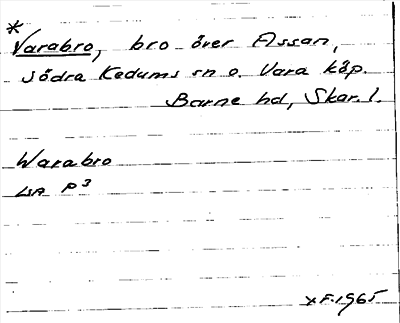 *
Varabro, bro över Assan,
södra Kedums sn o. Vara köp.
Barne hd, Skar. l.
Warabro
LSA P3
F. 1965